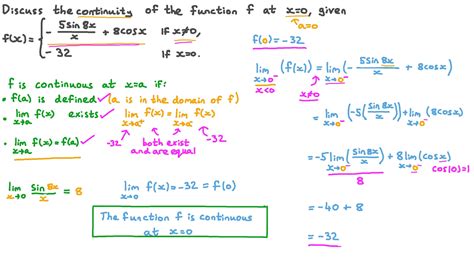 Discuss the continuity of the function f at x=0, given
f(x)= { - 5Sin 8x / x + 8cosx if x≠0,
- 32 if x=0.
a=0
f is continuous at x=a if:
• f(a) is defined ✓ (a is in the domain of f)
• lim x→a f(x) exists ✓ lim x→a⁺ f(x) = lim x→a⁻ f(x)
• lim x→a f(x) = f(a) ✓
-32 both exist and are equal -32
lim x→0 Sin 8x / x = 8
lim x→0 f(x) = -32 = f(0)
The function f is continuous
at x=0
f(0) = -32
lim x→0⁻ (f(x)) = lim x→0⁻ (- 5Sin 8x / x + 8cosx)
x<0 x≠0
= lim x→0⁻ (-5(Sin 8x / x)) + lim x→0⁻ (8cosx)
= -5 lim x→0⁻ (Sin 8x / x) + 8 lim x→0⁻ (cosx)
8 cos(0)=1
= -40 + 8
= -32